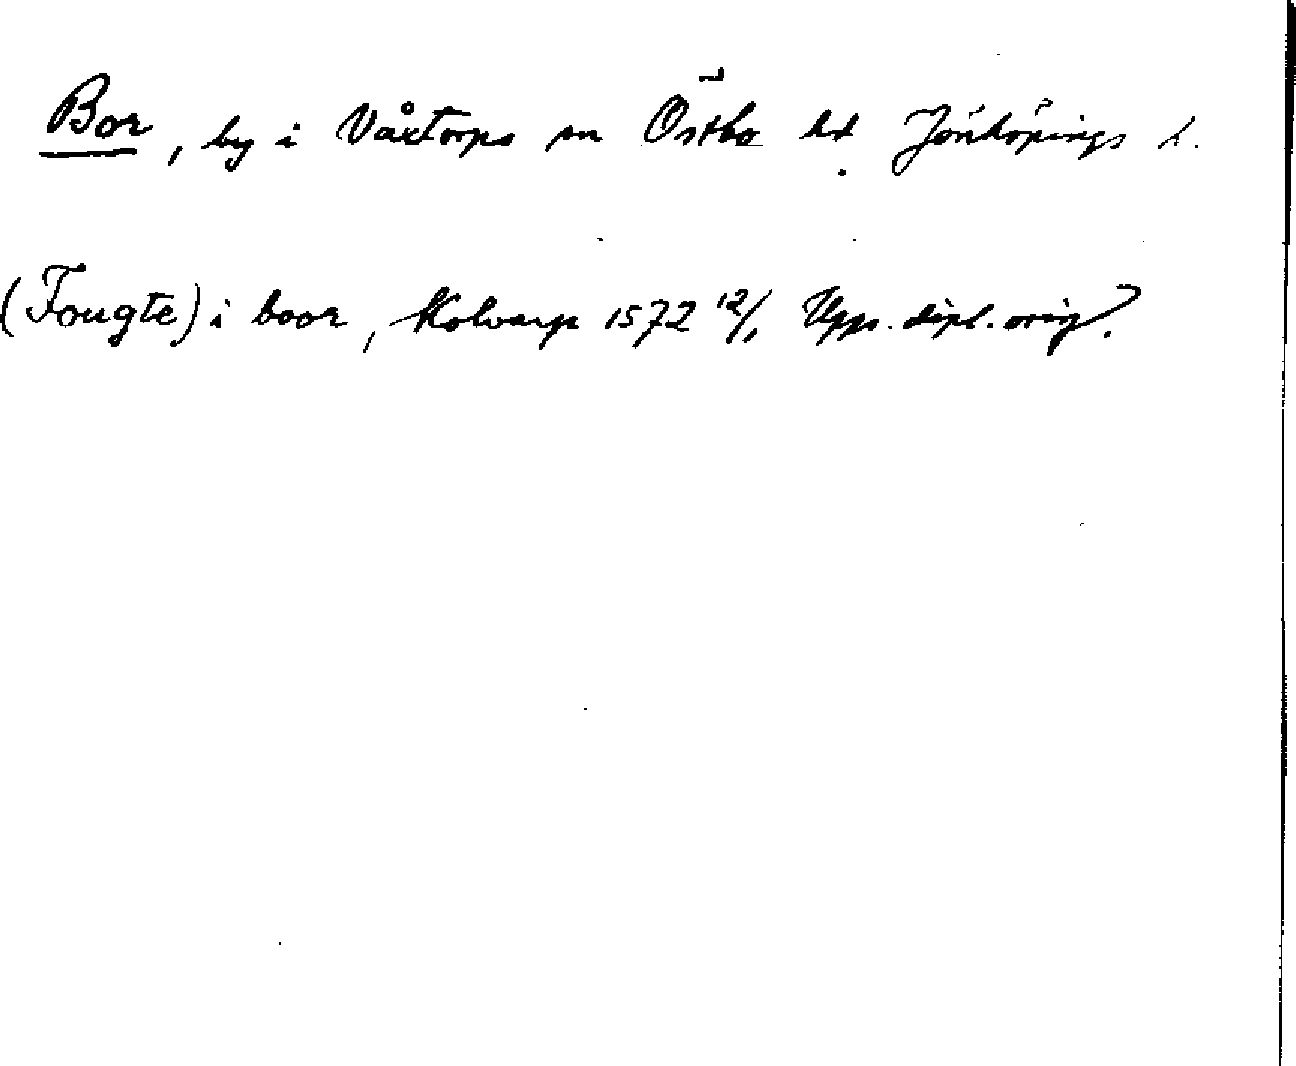 Bor, by i Våxtorps sn Östbo hd Jönköpings l.
(Fougte) i boor, Kolvarp 1572 12/1 Upps. dipl. orig?